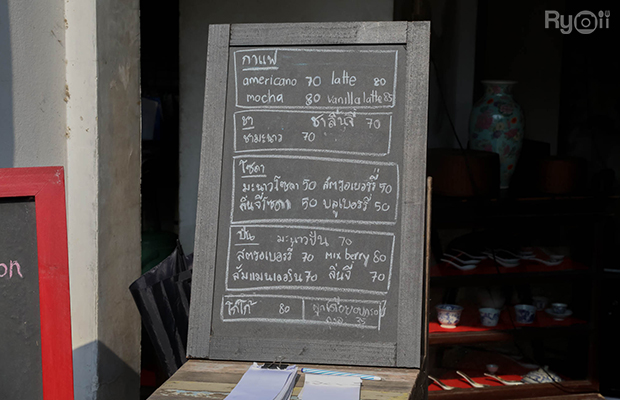 Ryoii
กาแฟ
americano 70 latte 80
mocha 80 vanilla latte 85
ชา ชาลิ้นจี่ 70
ชามะนาว 70
โซดา
มะนาวโซดา 50 สตรอเบอร์รี่ 50
ลิ้นจี่โซดา 50 บลูเบอร์รี่ 50
ปั่น มะนาวปั่น 70
สตรอเบอร์รี่ 70 mix berry 80
ลิ้นจี่ 70
โกโก้ 80
35
on